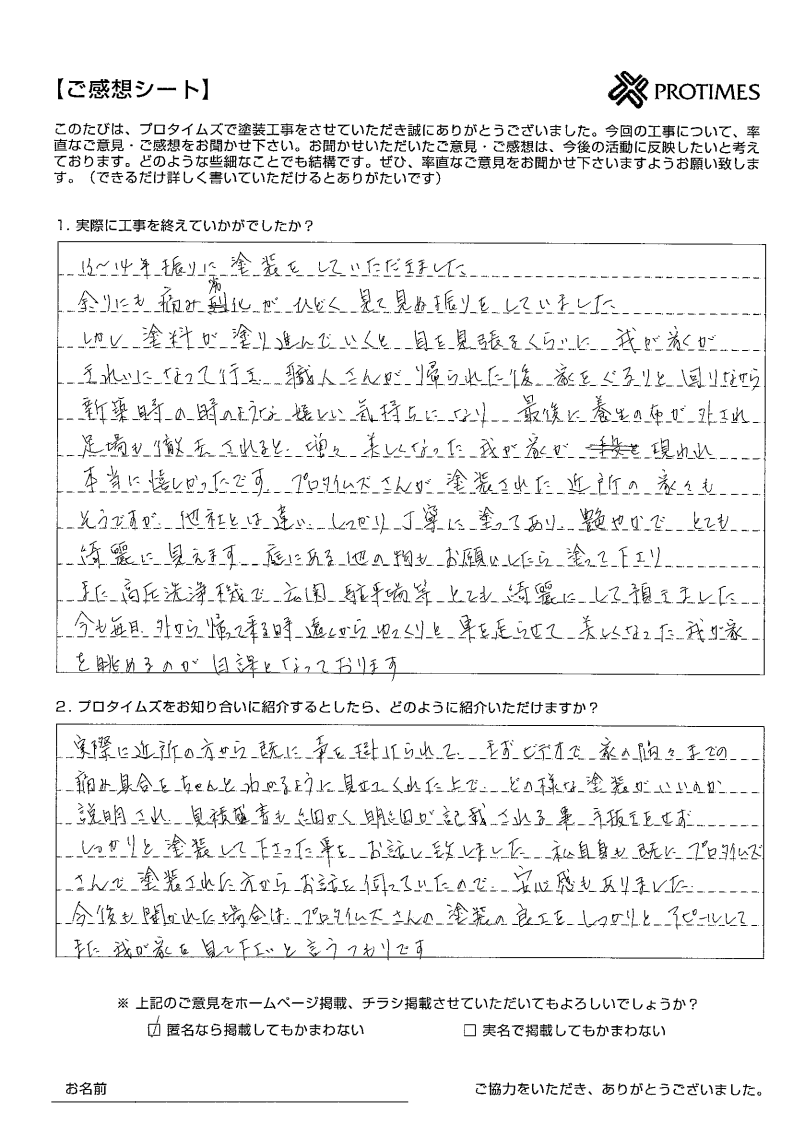 【ご感想シート】
PROTIMES
このたびは、プロタイムズで塗装工事をさせていただき誠にありがとうございました。今回の工事について、率
直なご意見・ご感想をお聞かせ下さい。お聞かせいただいたご意見・ご感想は、今後の活動に反映したいと考え
ております。どのような些細なことでも結構です。ぜひ、率直なご意見をお聞かせ下さいますようお願い致しま
す。（できるだけ詳しく書いていただけるとありがたいです）
1. 実際に工事を終えていかがでしたか？
13〜14年振りに塗装をしていただきました
余りにも痛み 化がひどく見て見ぬ振りをしていました
しかし塗料が塗り進んでいくと目を見張るくらいに我が家が
きれいになって行き、職人さんが帰られた後、家をぐるりと回りながら
新築時の時のような嬉しい気持ちになり、最後に養生の布が外され
足場も撤去されると、増々美しくなった我が家が 現われ
本当に嬉しかったです。プロタイムズさんが塗装された近所の家々も
そうですが、他社とは違い、しっかり丁寧に塗ってあり、艶やかで、とても
綺麗に見えます。庭にある他の物もお願いしたら塗って下さり
また高圧洗浄機で玄関、駐車場等とても綺麗にして頂きました
今も毎日、外から帰って来る時、遠くからゆっくりと車を走らせて美しくなった我が家
を眺めるのが日課となっております
2. プロタイムズをお知り合いに紹介するとしたら、どのように紹介いただけますか？
実際に近所の方から既に声を掛けられて、まずビデオで家の隅々までの
痛み具合をちゃんとわかるように見せてくれた上で、どの様な塗装がいいのか
説明され、見積書も細かく明細が記載される事、手抜きをせず
しっかりと塗装して下さった事をお話し致しました。私自身も既にプロタイムズ
さんで塗装された方からお話を伺っていたので、安心感もありました
今後も聞かれた場合は、プロタイムズさんの塗装の良さをしっかりとアピールして
また我が家を見て下さいと言うつもりです
※ 上記のご意見をホームページ掲載、チラシ掲載させていただいてもよろしいでしょうか？
☑ 匿名なら掲載してもかまわない □ 実名で掲載してもかまわない
お名前 ご協力をいただき、ありがとうございました。